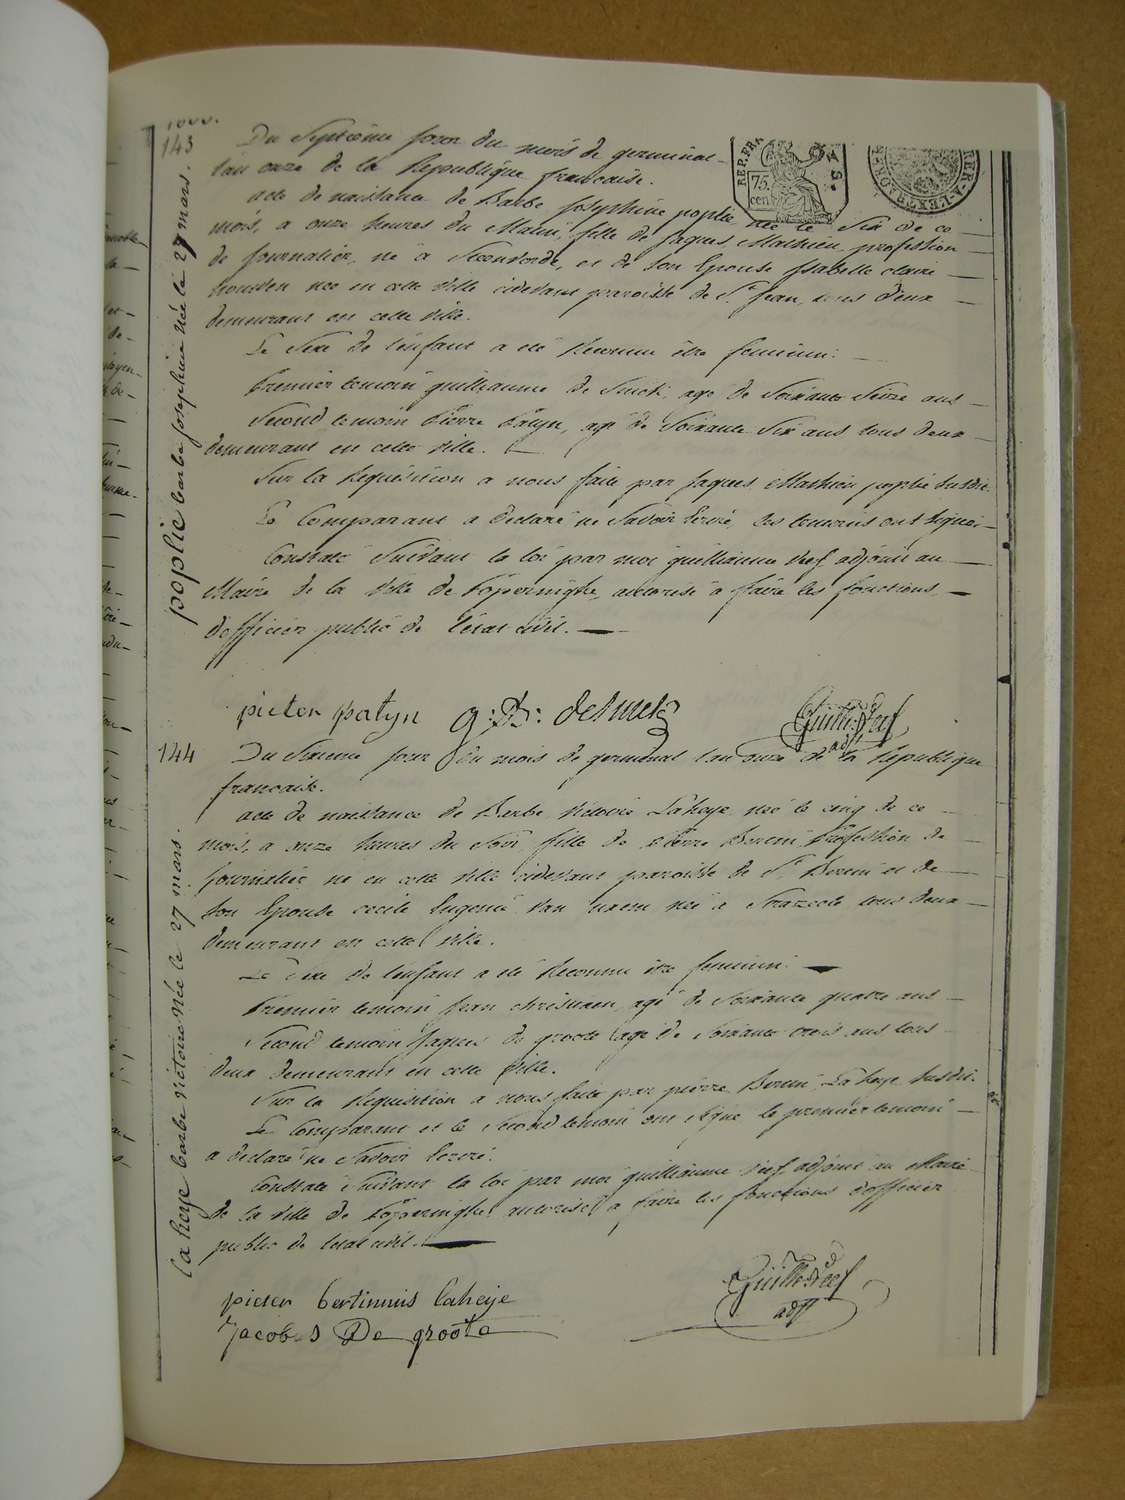 143
Du Septième jour du mois de germinal
l'an onze de la République française.
acte de naissance de Barbe Josephine poplie née le Six de ce
mois, a onze heures du Matin, fille de Jaques Mathieu profession
de Journalier, né à Steenvorde, et de Son Epouse Isabelle claire
née en cette Ville cidevant paroisse de St Jean, tous deux
demeurant en cette Ville.
Le Sexe de l'enfant a été Reconnu être feminin.
Premier temoin guilliaume de Smet, age de Soixante Seize ans
Second temoin Pierre Patyn, age de Soixante Six ans tous deux
demeurant en cette Ville.
Sur la Requisition a nous faite par Jaques Mathieu poplie Susdit.
Le Comparant a declaré ne Savoir Ecrire, les temoins ont Signé
Constaté Suivant la loi par moi guilliaume Deef adjoint au
Maire de la Ville de Poperinghe, autorisé a faire les fonctions
d'officier public de l'état civil.
REP. FRA
75
cen
poplie barbe josephine née le 27 mars.
pieter patyn
desmet
Guille Deef
adjt
144
Du Sixieme jour du mois de germinal l'an onze de la République
française.
acte de naissance de Barbe Victoire Laheye née le cinq de ce
mois, a onze heures du Soir, fille de Pierre Bertin profession de
Journalier né en cette Ville cidevant paroisse de St Bertin et de
Son Epouse cecile Eugenie Van née à Strazeele tous deux
demeurant en cette Ville.
Le Sexe de l'enfant a été Reconnu être feminin.
Premier temoin Jean christiaen, agé de Soixante quatre ans
Second temoin Jaques de groote agé de Soixante trois ans tous
deux demeurant en cette Ville.
Sur la Requisition a nous faite par pierre Bertin Laheye Susdit.
Le Comparant et le Second temoin ont Signé le premier temoin
a declaré ne Savoir Ecrire.
Constaté Suivant la loi par moi guilliaume Deef adjoint au Maire
de la Ville de Poperinghe autorisé a faire les fonctions d'officier
public de l'état civil.
la heye barbe victoire née le 27 mars.
pieter bertinnus laheije
Jacobus De groote
Guille Deef
adjt